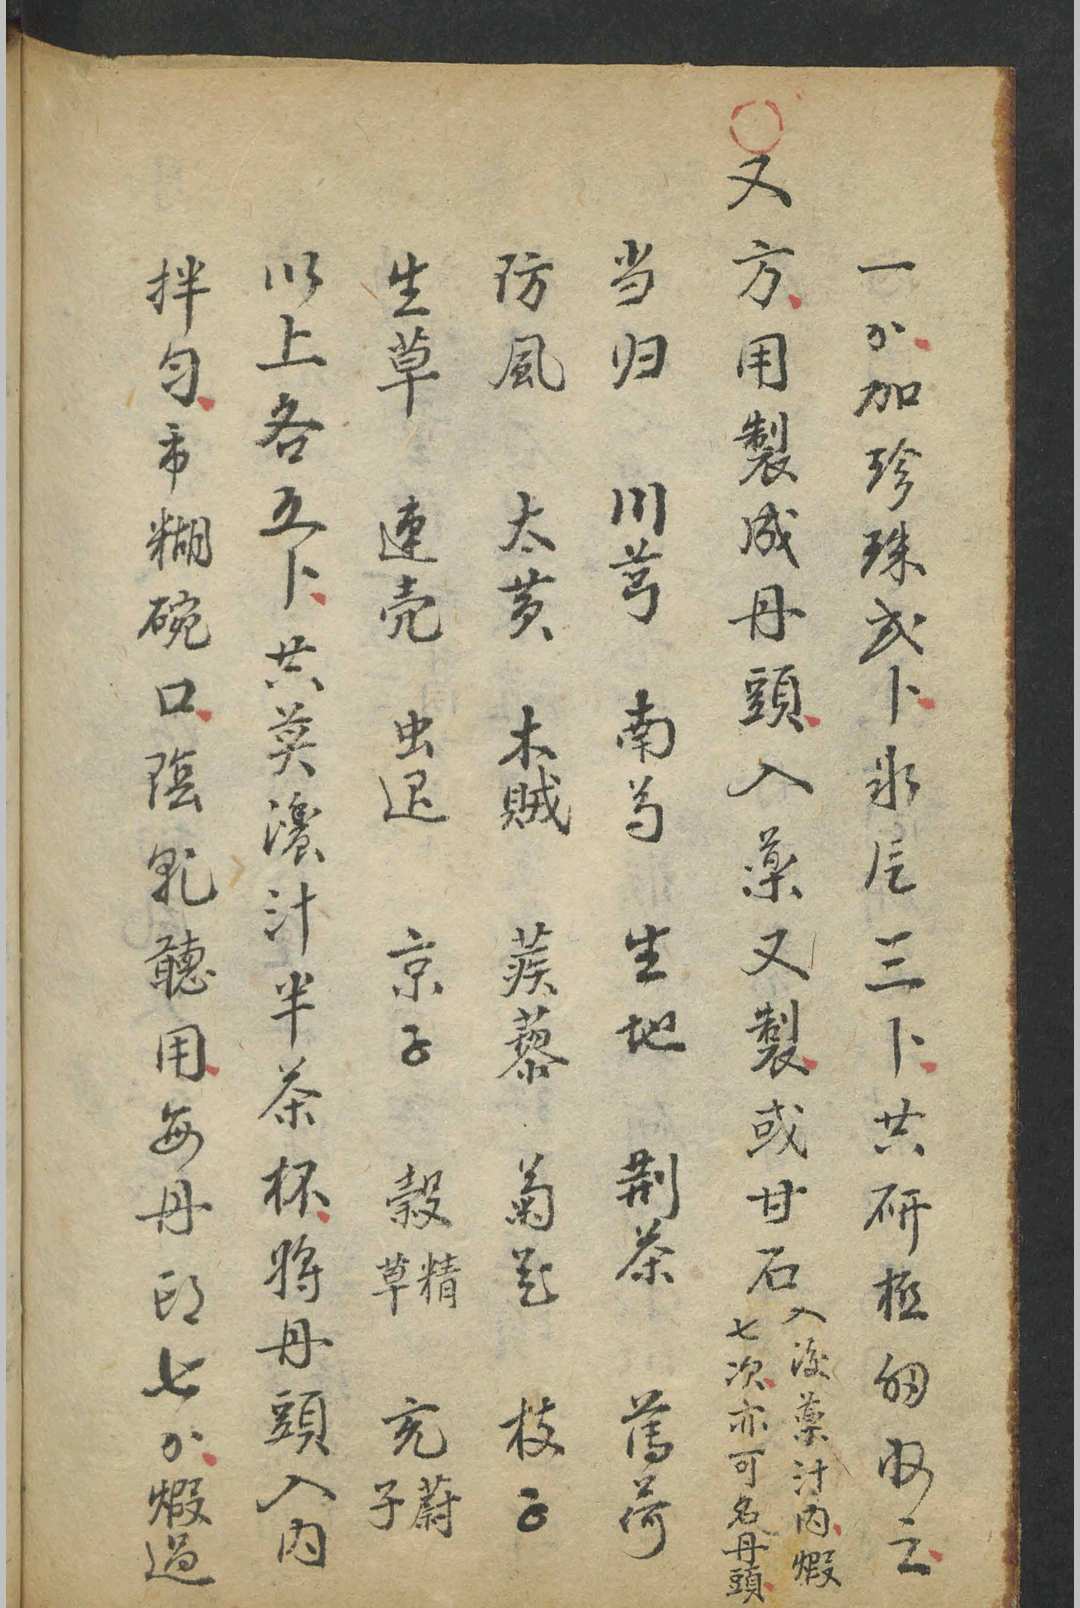 一分加珍珠弍卜氷片三卜共研極細收之
又方用製成丹頭入藥又製或甘石
入後藥汁內煆
七次亦可名丹頭
当归 川芎 南芎 生地 荆茶 薄荷
防風 大黄 木賊 蒺藜 菊花 枝子
生草 連壳 虫退 京子 榖精草 充蔚子
以上各五卜共莫濃汁半茶杯將丹頭入内
拌匀布糊碗口陰乹聽用每丹卽七分煆過